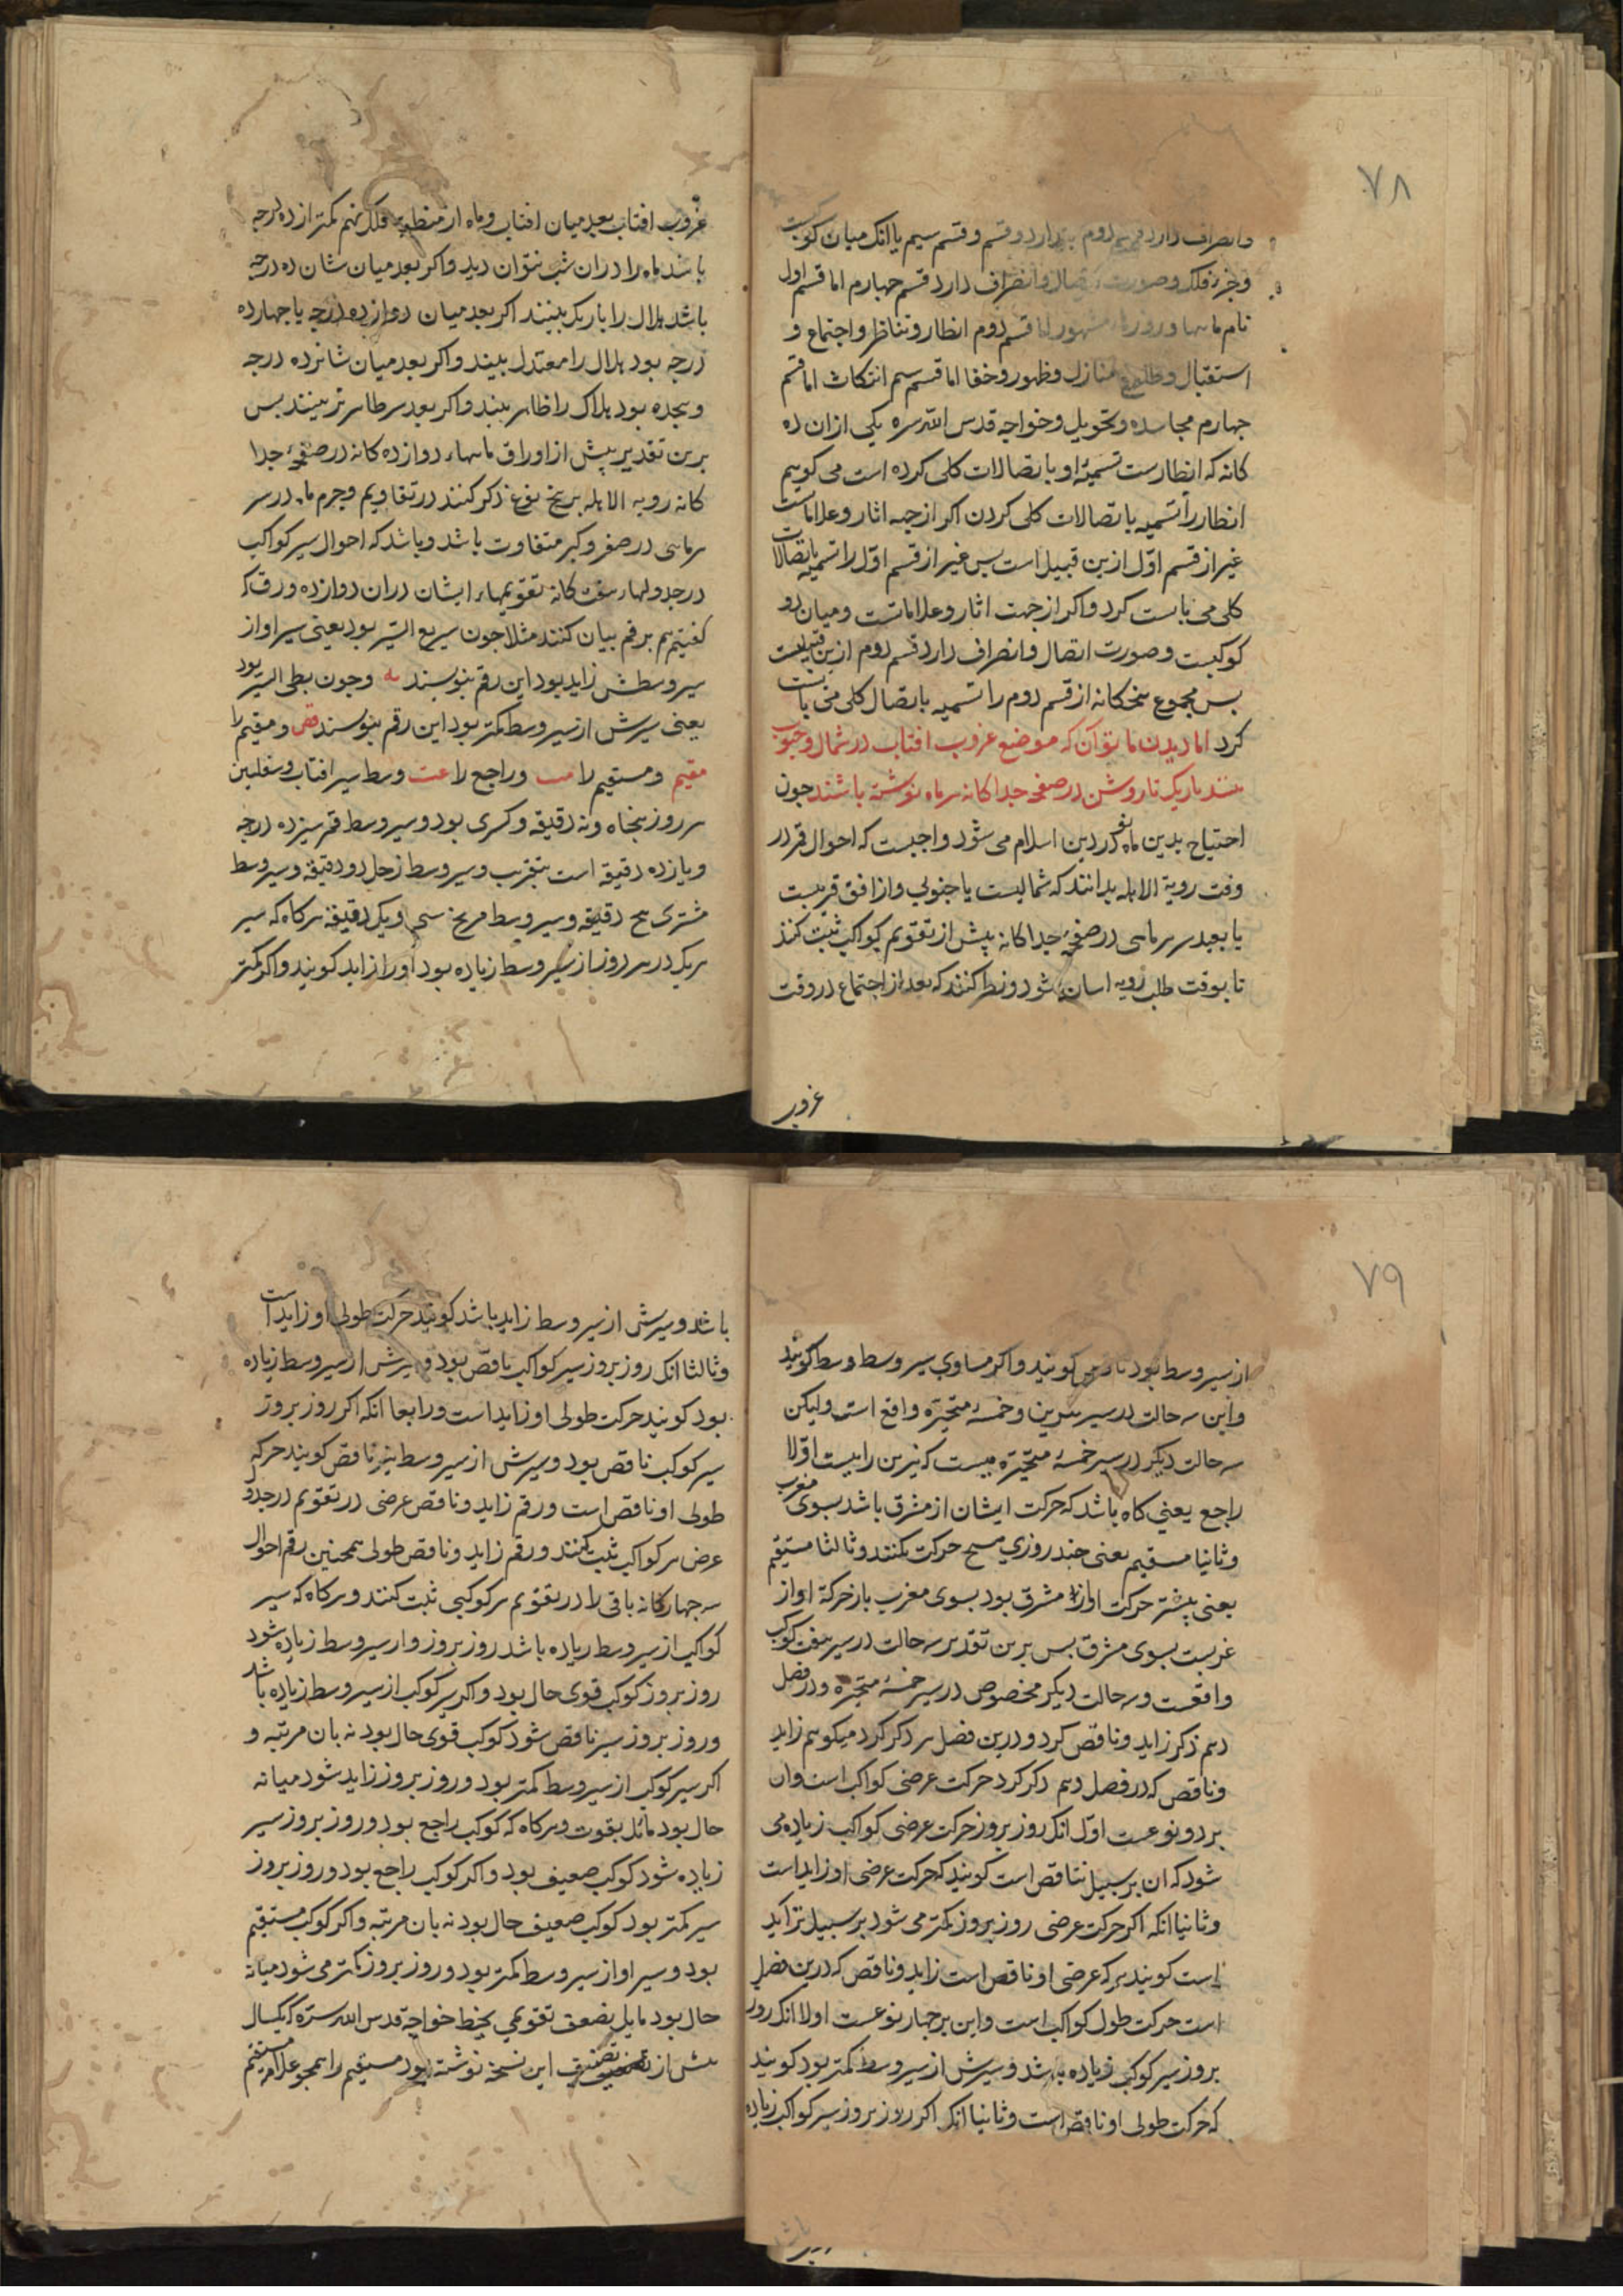 ۷۸
وانصراف دارد قسم دوم یا ندارد و قسم و قسم سیم یا انک میان کوکبست
و جزء فلک و صورت اتصال و انصراف دارد قسم جهارم اما قسم اول
نام ماهها و روزها مشهور اما قسم دوم انظار و تناظر و اجتماع و
استقبال و طلوع منازل و ظهور و خفا اما قسم سیم انتکاث اما قسم
جهارم مجاسده و تحویل و خواجه قدس الله سره یکی ازان ده
کانه که انظارست تسمیۀ او باتصالات کلی کرده است می کوییم
انظار را تسمیه باتصالات کلی کردن اکر از جهه اثار و علاماتست
غیر از قسم اوّل ازین قبیل است بس غیر از قسم اوّل را تسمیه باتصالات
کلی می بایست کرد و اکر از جهت اثار و علاماتست و میان دو
کوکبست و صورت اتصال و انصراف دارد قسم دوم ازین قبیلست
بس مجموع پنجکانه از قسم دوم را تسمیه باتصال کلی می بایست
کرد اما دیدن ماه بتوان که موضع غروب افتاب در شمال و جنوب
بینند باریک تا روشن در صفحه جداکانه هر ماه نوشته باشند جون
احتیاج بدین ماه نو کردین اسلام می شود واجبست که احوال قمر در
وقت رویة الاهله بدانند که شمالیست یا جنوبی و از افق قریبست
یا بعید هر ماهی در صفحۀ جداکانه بیش از تقویم کواکب ثبت کنند
تا بوقت طلب رویه اسان شود و نظر کنند که بعد از اجتماع در وقت
غروب
غروب افتاب بعد میان افتاب و ماه از منطقه فلک نهم کمتر از ده درجه
باشد ماه را دران شب نتوان دید و اکر بعد میان شان ده درجه
باشد هلال را باریک بینند اکر بعد میان دوازده درجه یا جهارده
درجه بود هلال را معتدل بینند و اکر بعد میان شانزده درجه
و هجده بود هلال را ظاهر بینند و اکر بعد هر ظاهرتر بینند بس
برین تقدیر بیش از اوراق ماهها دوازده کانه در صفحۀ جدا
کانه رویه الاهله برین نوع ذکر کنند در تقاویم و جرم ماه در سر
هر ماهی در صغر و کبر متفاوت باشد و باشد که احوال سیر کواکب
در جدولهاء هفت کانه تقویمهاء ایشان دران دوازده ورق که
کفتیم هم برقم بیان کنند مثلا جون سریع السیر بود یعنی سیر او از
سیر وسطش زاید بود این رقم بنویسند یه و جون بطی السیر بود
یعنی سیرش از سیر وسط کمتر بود این رقم بنویسند قص و مقیم را
مقیم و مستقیم را مت و راجع را عت وسط سیر افتاب و سفلیین
هر روز بنجاه و نه دقیقه و کسری بود و سیر وسط قمر سیزده درجه
و یازده دقیقه است بتقریب و سیر وسط زحل دو دقیقه و سیر وسط
مشتری پنج دقیقه و سیر وسط مریخ سی و یک دقیقه هرکاه که سیر
هریک در هر روز از سیر وسط زیاده بود او را زاید کویند و اکر کمتر
۷۹
از سیر وسط بود ناقص کویند و اکر مساوی سیر وسط وسط کویند
و این سه حالت در سیر نیرین و خمسۀ متحیّره واقع است و لیکن
سه حالت دیکر در سیر خمسۀ متحیّره هست که نیرین را نیست اوّلا
راجع یعنی کاه باشد که حرکت ایشان از مشرق باشد بسوی مغرب
و ثانیا مقیم یعنی جند روزی هیچ حرکت نکنند و ثالثا مستقیم
یعنی بیشتر حرکت او از مشرق بود بسوی مغرب باز حرکة او از
غربست بسوی مشرق بس برین تقدیر سه حالت در سیر هفت کوکب
واقعست و سه حالت دیکر مخصوص در سیر خمسۀ متحیّره و در فصل
دهم ذکر زاید و ناقص کرد و درین فصل هم ذکر کرد میکوییم زاید
و ناقص که در فصل دهم ذکر کرد حرکت عرضی کواکب است و ان
بر دو نوعست اوّل انک روز بروز حرکت عرضی کواکب زیاده می
شود که ان بر سبیل تناقص است کویند که حرکت عرضی او زاید است
و ثانیا انکه اکر حرکت عرضی روز بروز کمتر می شود بر سبیل تزاید
است کویند هرکه عرضی او ناقص است زاید و ناقص که درین فصل
است حرکت طول کواکب است و این بر جهار نوعست اولا انک روز
بروز سیر کوکب زیاده باشد و سیرش از سیر وسط کمتر بود کویند
که حرکت طولی او ناقص است و ثانیا انک اکر روز بروز سیر کواکب زیاده
باشد
باشد و سیرش از سیر وسط زاید باشد کویند حرکت طولی او زاید است
و ثالثا انک روز بروز سیر کواکب ناقص بود و سیرش از سیر وسط زیاده
بود کویند حرکت طولی او زاید است و رابعا انکه اکر روز بروز
سیر کوکب ناقص بود و سیرش از سیر وسط نیز ناقص کویند حرکه
طولی او ناقص است و رقم زاید و ناقص عرضی در تقویم در جدول
عرض هر کواکب ثبت کنند و رقم زاید و ناقص طولی همجنین رقم احوال
سه جهارکانه باقی را در تقویم هر کوکبی ثبت کنند و هرکاه که سیر
کواکب از سیر وسط زیاده باشد روز بروز و از سیر وسط زیاده شود
روز بروز کوکب قوی حال بود و اکر سیر کوکب از سیر وسط زیاده باشد
و روز بروز سیر ناقص شود کوکب قوی حال بود نه بان مرتبه و
اکر سیر کوکب از سیر وسط کمتر بود و روز بروز زاید شود میانه
حال بود مائل بقوت و هرکاه که کوکب راجع بود و روز بروز سیر
زیاده شود کوکب ضعیف بود و اکر کوکب راجع بود و روز بروز
سیر کمتر بود کوکب ضعیف حال بود نه بان مرتبه و اکر کوکب مستقیم
بود و سیر او از سیر وسط کمتر بود و روز بروز کمتر می شود میانه
حال بود مایل بضعف تقویمی بخط خواجه قدس الله سرّه که یکسال
بیش از تصنیف این نسخه نوشته بود مستقیم را همجو علامة مقیم